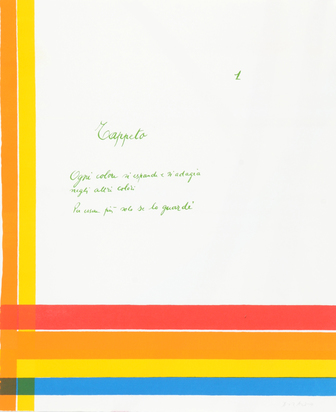 1
Tappeto
Ogni colore si espande e si adagia
negli altri colori
Per essere più solo se lo guardi